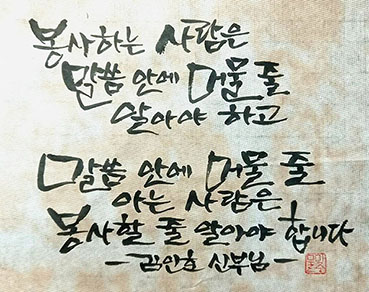 봉사하는 사람은
말씀 안에 머물 줄
알아야 하고
말씀 안에 머물 줄
아는 사람은
봉사할 줄 알아야 합니다
- 김인호 신부님 -